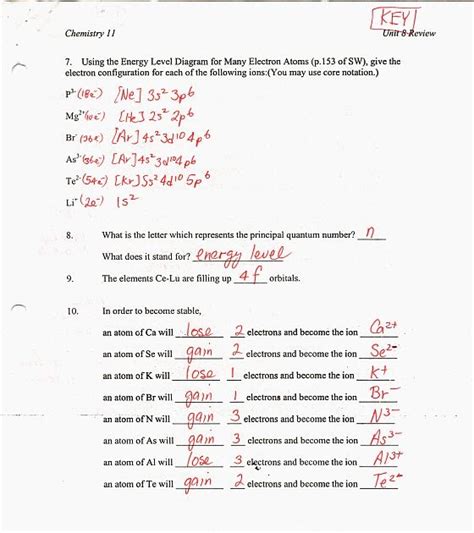 KEY
Chemistry 11 Unit 8 Review
7. Using the Energy Level Diagram for Many Electron Atoms (p.153 of SW), give the
electron configuration for each of the following ions:(You may use core notation.)
P³⁻ (18e⁻) [Ne] 3s² 3p⁶
Mg²⁺ (10e⁻) [He] 2s² 2p⁶
Br⁻ (36e⁻) [Ar] 4s² 3d¹⁰ 4p⁶
As³⁻ (36e⁻) [Ar] 4s² 3d¹⁰ 4p⁶
Te²⁻ (54e⁻) [Kr] 5s² 4d¹⁰ 5p⁶
Li⁺ (2e⁻) 1s²
8. What is the letter which represents the principal quantum number? n
What does it stand for? energy level
9. The elements Ce-Lu are filling up 4f orbitals.
10. In order to become stable,
an atom of Ca will lose 2 electrons and become the ion Ca²⁺
an atom of Se will gain 2 electrons and become the ion Se²⁻
an atom of K will lose 1 electrons and become the ion K⁺
an atom of Br will gain 1 electrons and become the ion Br⁻
an atom of N will gain 3 electrons and become the ion N³⁻
an atom of As will gain 3 electrons and become the ion As³⁻
an atom of Al will lose 3 electrons and become the ion Al³⁺
an atom of Te will gain 2 electrons and become the ion Te²⁻